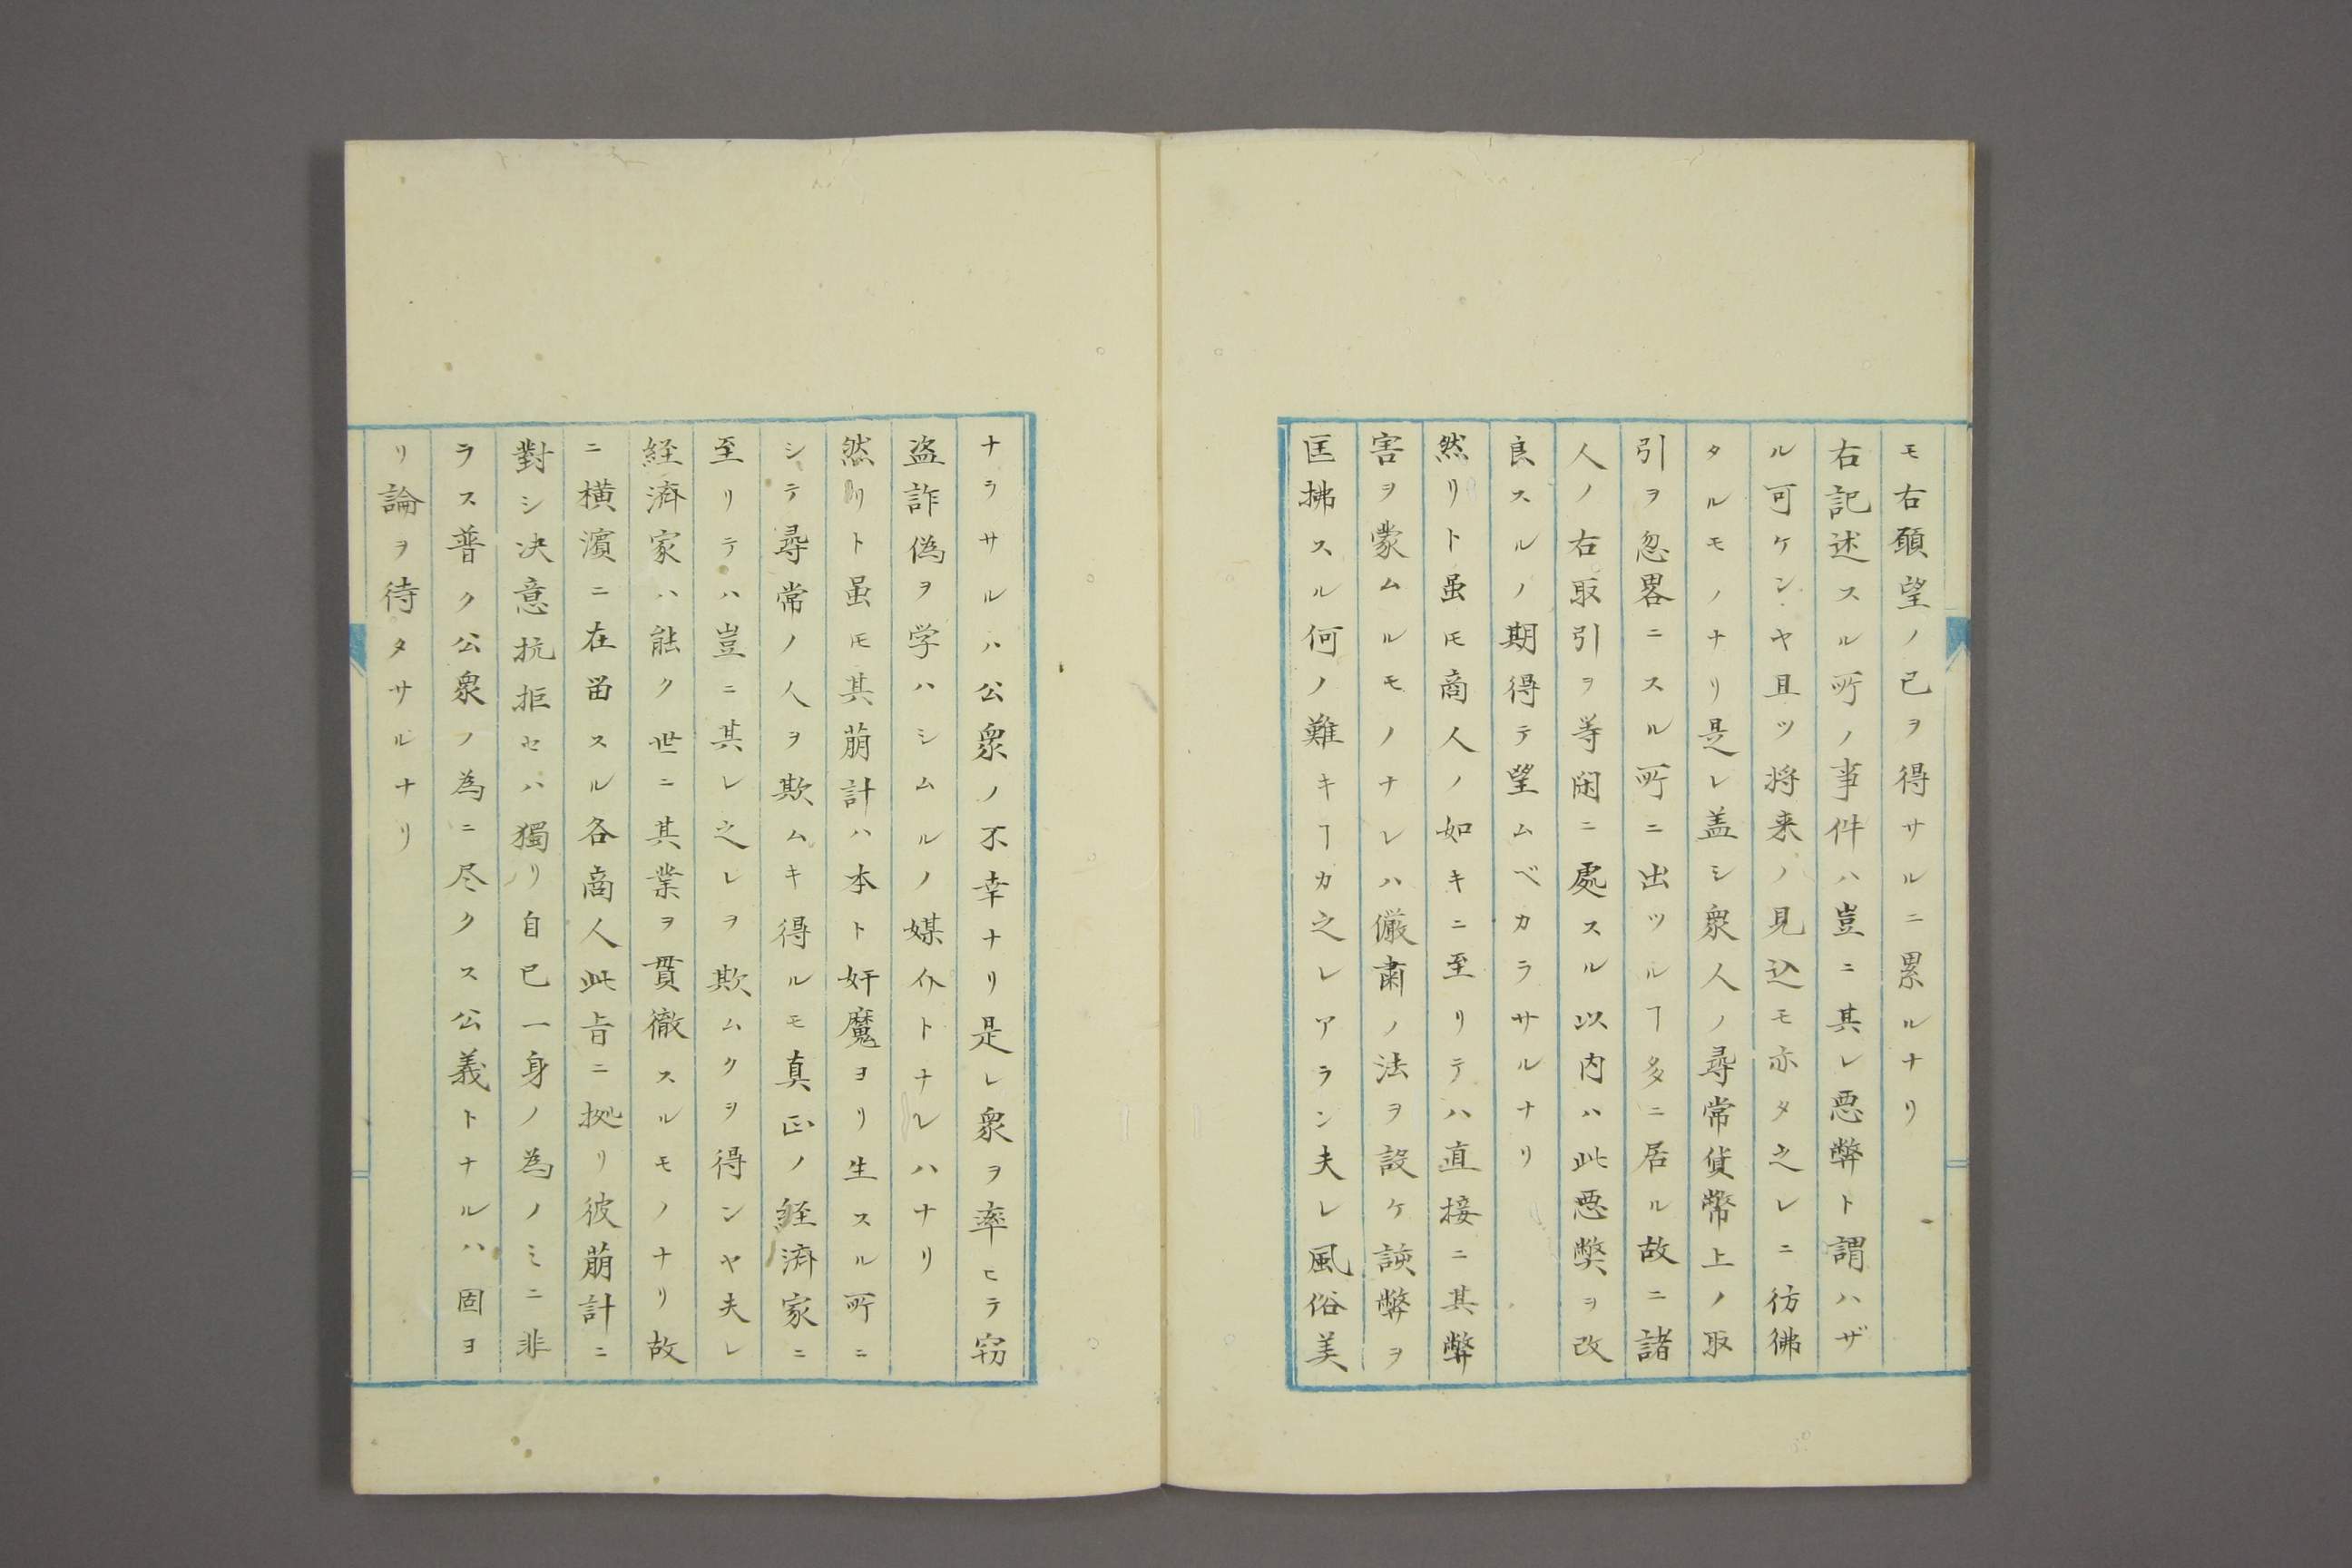 モ右願望ノ已ヲ得サルニ累ルナリ
右記述スル所ノ事件ハ豈ニ其レ悪弊ト謂ハザ
ル可ケンヤ且ツ将来ノ見込モ亦タ之レニ彷彿
タルモノナリ是レ盖シ衆人ノ尋常貨幣上ノ取
引ヲ忽畧ニスル所ニ出ツルヿ多ニ居ル故ニ諸
人ノ右取引ヲ等閑ニ處スル以内ハ此悪弊ヲ改
良スルノ期得テ望ムベカラサルナリ
然リト虽𪜈商人ノ如キニ至リテハ直接ニ其弊
害ヲ蒙ムルモノナレハ儼粛ノ法ヲ設ケ該弊ヲ
匡拂スル何ノ難キヿカ之レアラン夫レ風俗美
ナラサルハ公衆ノ不幸ナリ是レ衆ヲ率ヒテ窃
盗詐偽ヲ学ハシムルノ媒介トナレハナリ
然リト虽𪜈其萠計ハ本ト奸魔ヨリ生スル所ニ
シテ尋常ノ人ヲ欺ムキ得ルモ真正ノ経済家ニ
至リテハ豈ニ其レ之レヲ欺ムクヲ得ンヤ夫レ
経済家ハ能ク世ニ其業ヲ貫徹スルモノナリ故
ニ横濱ニ在留スル各商人此旨ニ拠リ彼萠計ニ
對シ决意抗拒セハ獨リ自已一身ノ為ノミニ非
ラス普ク公衆ノ為ニ尽クス公義トナルハ固ヨ
リ論ヲ待タサルナリ